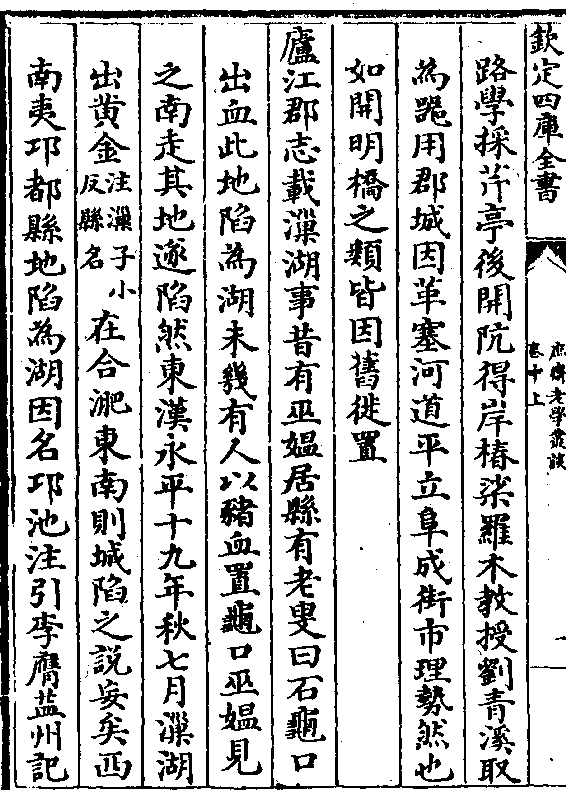 欽定四庫全書
庶齋老學叢談
卷中上
路學採芹亭後開阬得岸樁柒羅木教授劉青溪取
為跪用郡城因革塞河道平立阜成街市理勢然也
如開明橋之類皆因舊徙置
廬江郡志載漅湖事昔有巫媪居縣有老叟曰石龜口
出血此地陷為湖未幾有人以豬血置龜口巫媪見
之南走其地遂陷然東漢永平十九年秋七月漅湖
出黄金注漅子小反縣名在合淝東南則城陷之説妄矣西
南夷邛都縣地陷為湖因名邛池注引李膺益州記